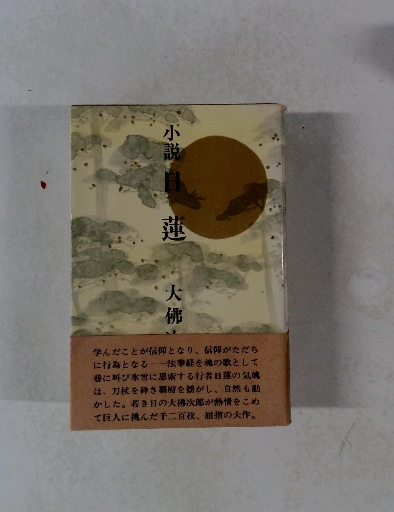 小説 日蓮
大佛
学んだことが信仰となり、信仰がただち
に行為となる――法華経を魂の歌として
巷に叫び氷雪に思索する行者日蓮の気魄
は、刀杖を砕き覇府を揺がし、自然も動
かした。若き日の大佛次郎が熱情をこめ
て巨人に挑んだ千二百枚、屈指の大作。